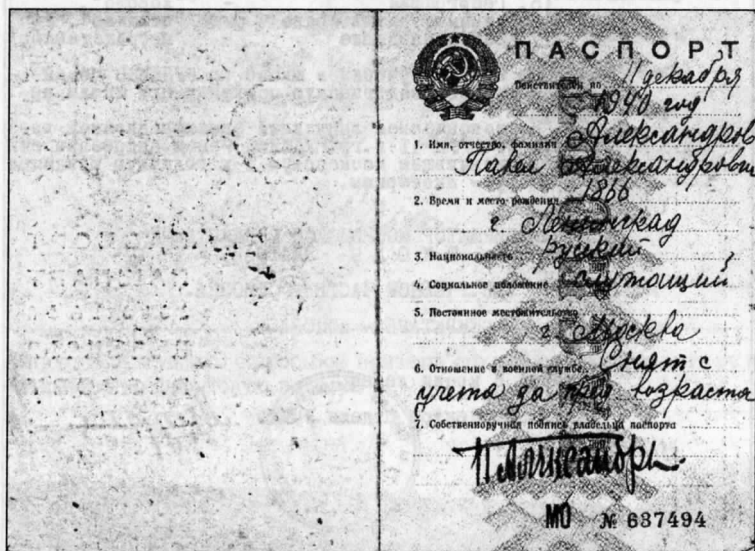 ПАСПОРТ
Действителен по 11 декабря
1940 год
1. Имя, отчество, фамилия Александров
Павел Александрович
2. Время и место рождения 1866
г. Ленинград
3. Национальность Русский
4. Социальное положение служащий
5. Постоянное местожительство
г. Москва
6. Отношение к военной службе. Снят с
учета за пред возраста
7. Собственноручная подпись владельца паспорта
МО № 637494